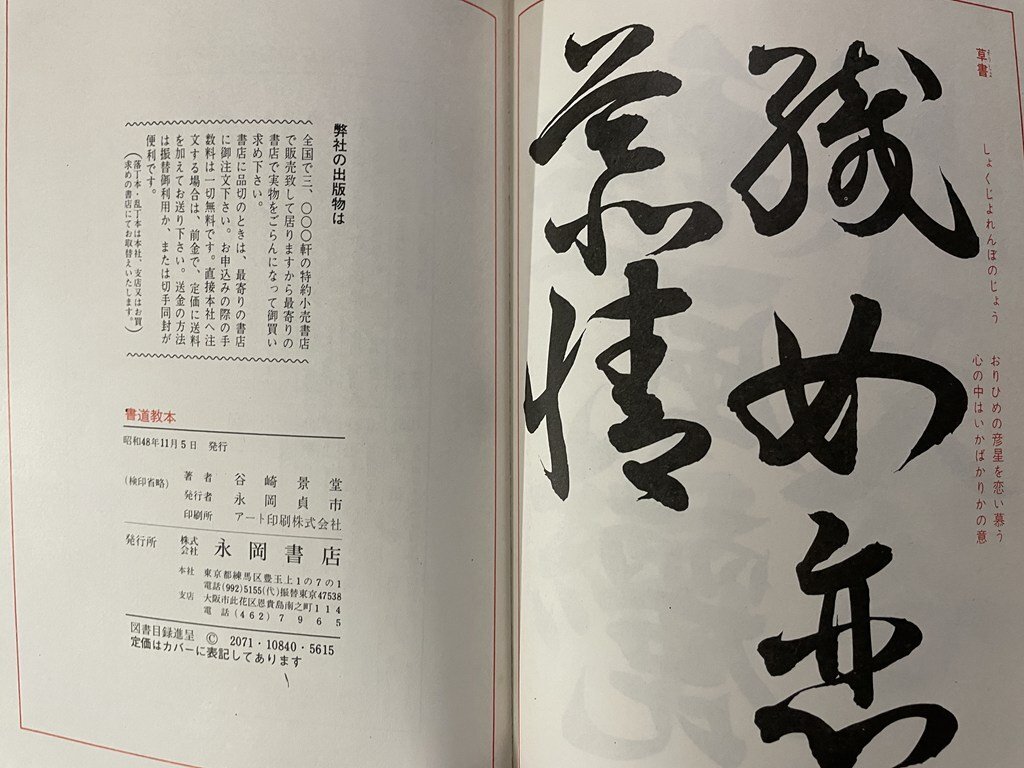 草書
そうしょ
しょくじよれんぼのじょう
おりひめの彦星を恋い慕う
心の中はいかばかりかの意
織女恋
慕情
弊社の出版物は
全国で三、〇〇〇軒の特約小売書店
で販売致して居りますから最寄りの
書店で実物をごらんになって御買い
求め下さい。
書店に品切のときは、最寄りの書店
に御注文下さい。お申込みの際の手
数料は一切無料です。直接本社へ注
文する場合は、前金で、定価に送料
を加えてお送り下さい。送金の方法
は振替御利用か、または切手同封が
便利です。
(落丁本・乱丁本は本社、支店又はお買
求めの書店にてお取替えいたします。)
書道教本
昭和48年11月5日 発行
(検印省略)
著者 谷崎景堂
発行者 永岡貞市
印刷所 アート印刷株式会社
発行所 株式会社 永岡書店
本社 東京都練馬区豊玉上1の7の1
電話(992)5155(代)振替東京47538
支店 大阪市此花区恩貴島南之町114
電話(462)7965
図書目録進呈 © 2071・10840・5615
定価はカバーに表記してあります